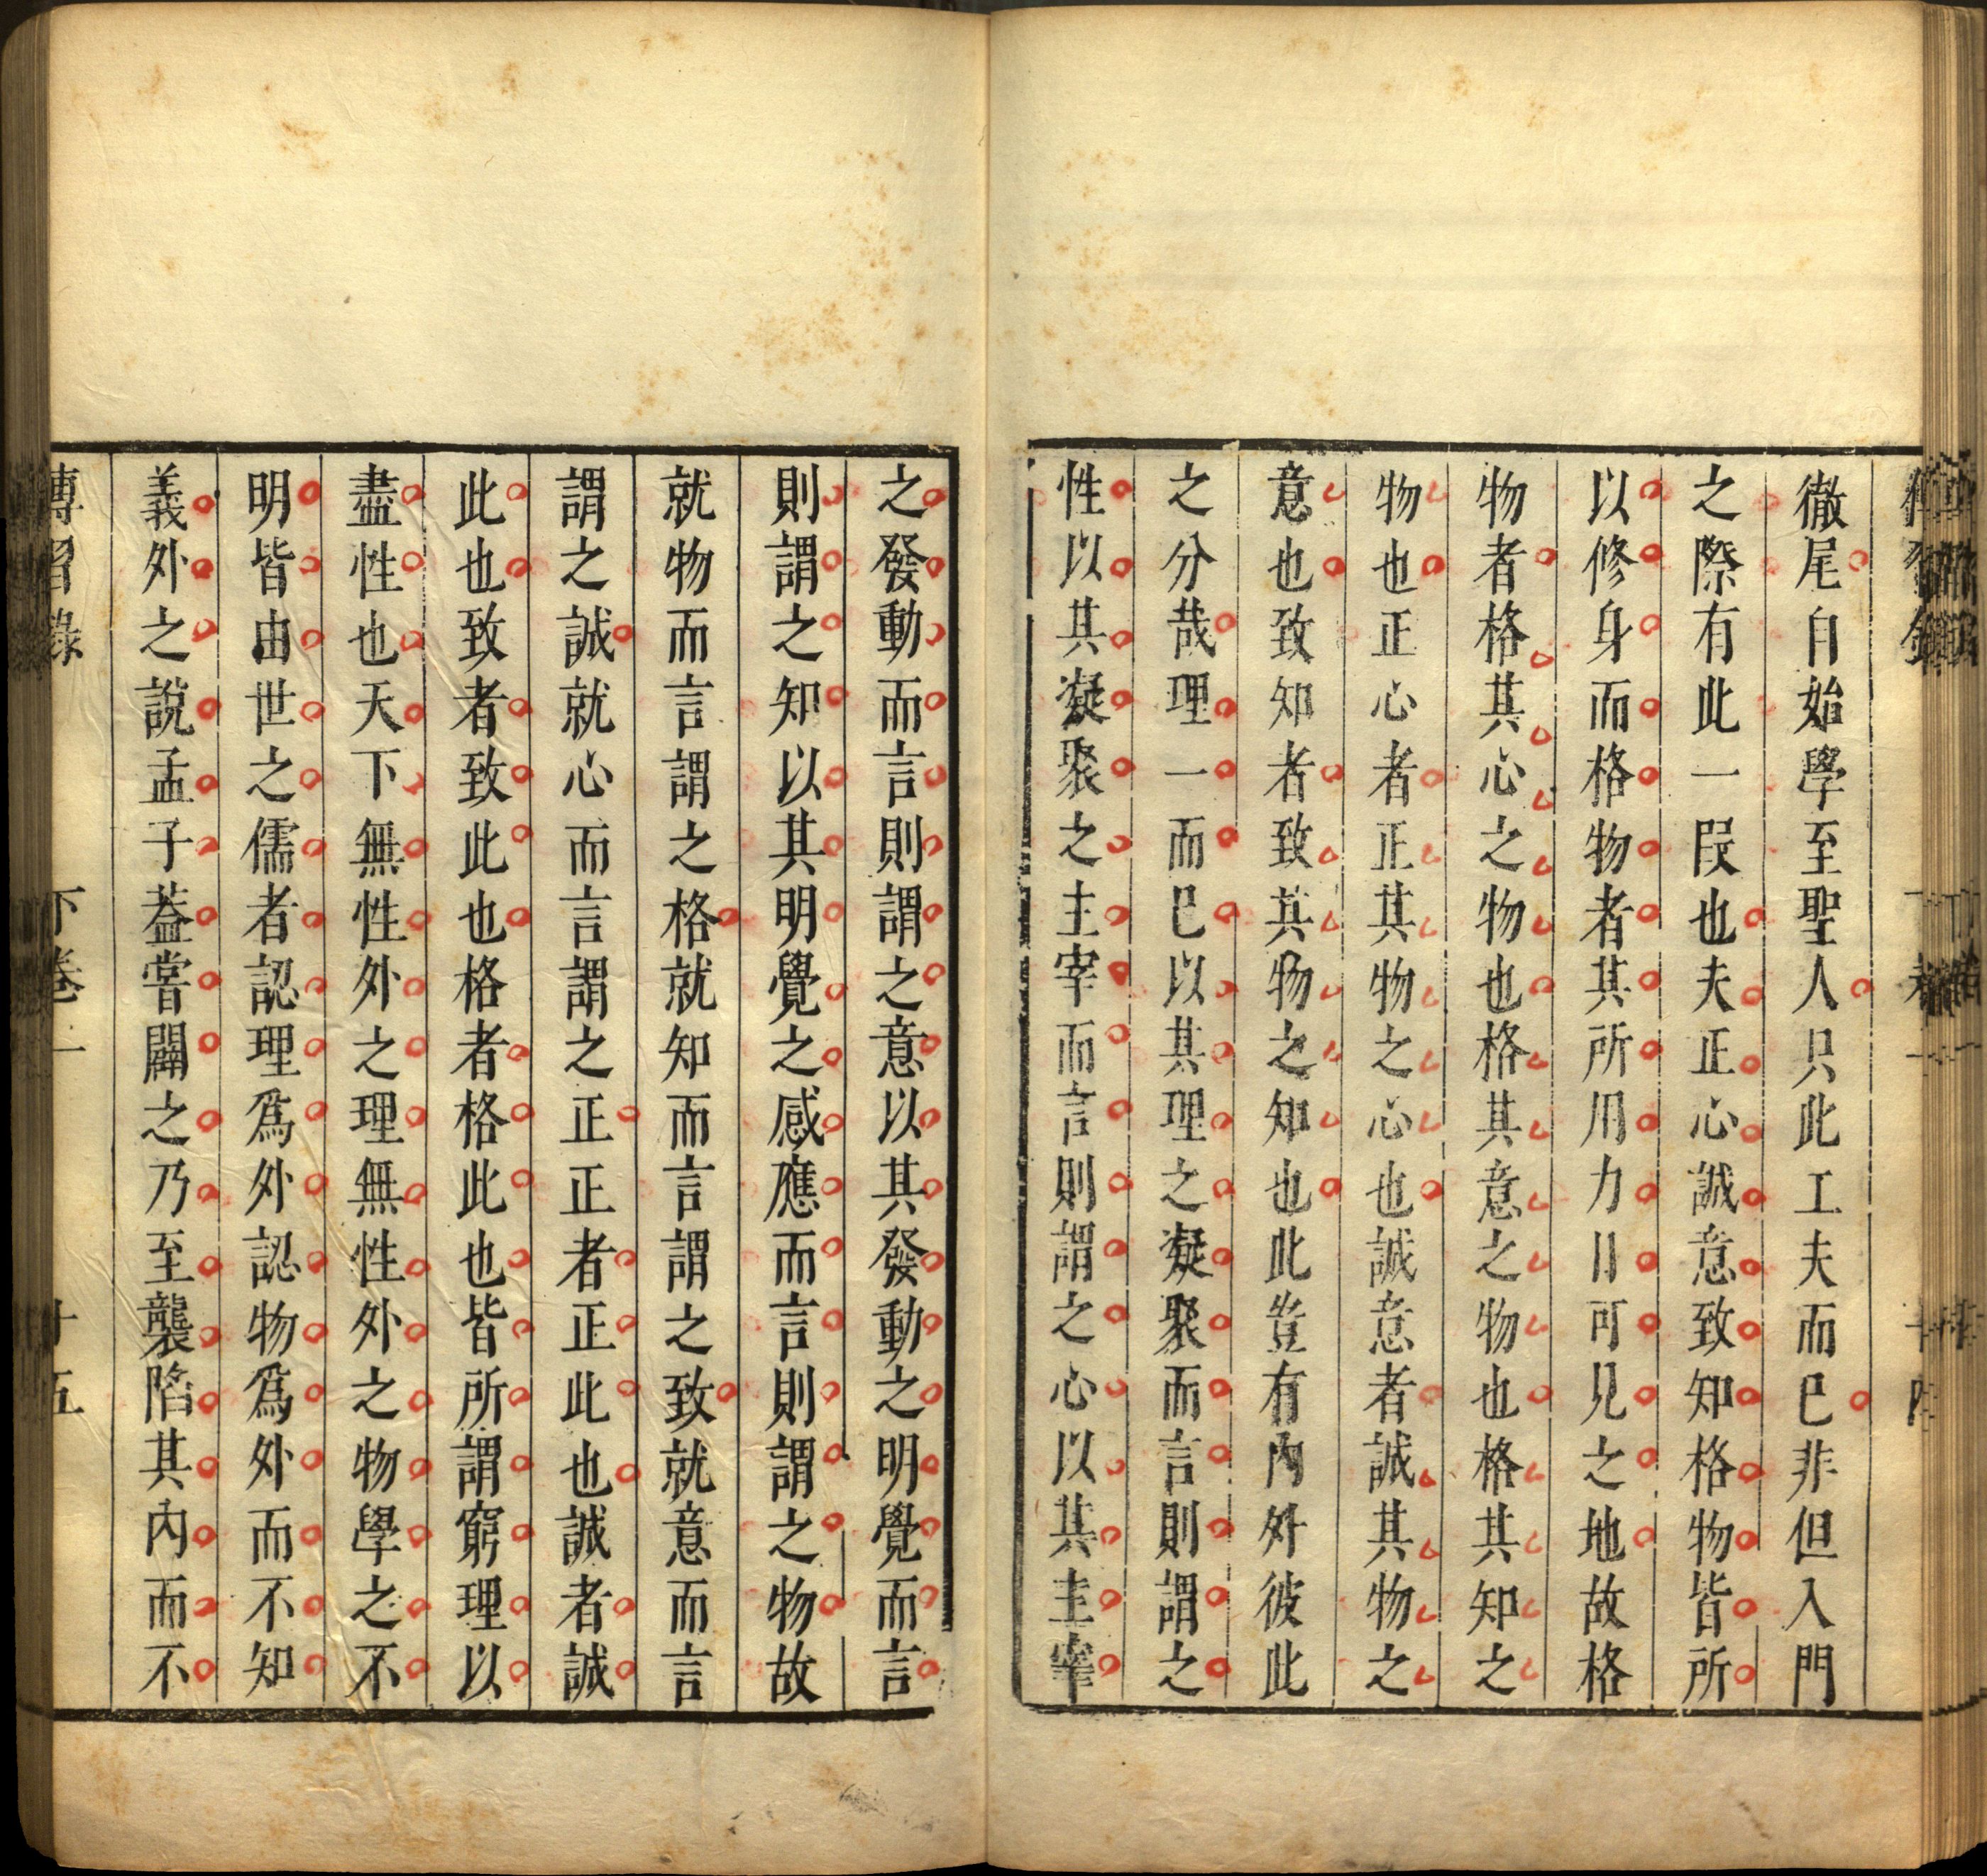 徹尾自始學至聖人只此工夫而已非但入門
之際有此一段也夫正心誠意致知格物皆所
以修身而格物者其所用力日可見之地故格
物者格其心之物也格其意之物也格其知之
物也正心者正其物之心也誠意者誠其物之
意也致知者致其物之知也此豈有內外彼此
之分哉理一而已以其理之凝聚而言則謂之
性以其凝聚之主宰而言則謂之心以其主宰
之發動而言則謂之意以其發動之明覺而言
則謂之知以其明覺之感應而言則謂之物故
就物而言謂之格就知而言謂之致就意而言
謂之誠就心而言謂之正正者正此也誠者誠
此也致者致此也格者格此也皆所謂窮理以
盡性也天下無性外之理無性外之物學之不
明皆由世之儒者認理爲外認物爲外而不知
義外之說孟子葢嘗闢之乃至襲陷其內而不
傳習錄 下卷二 十五